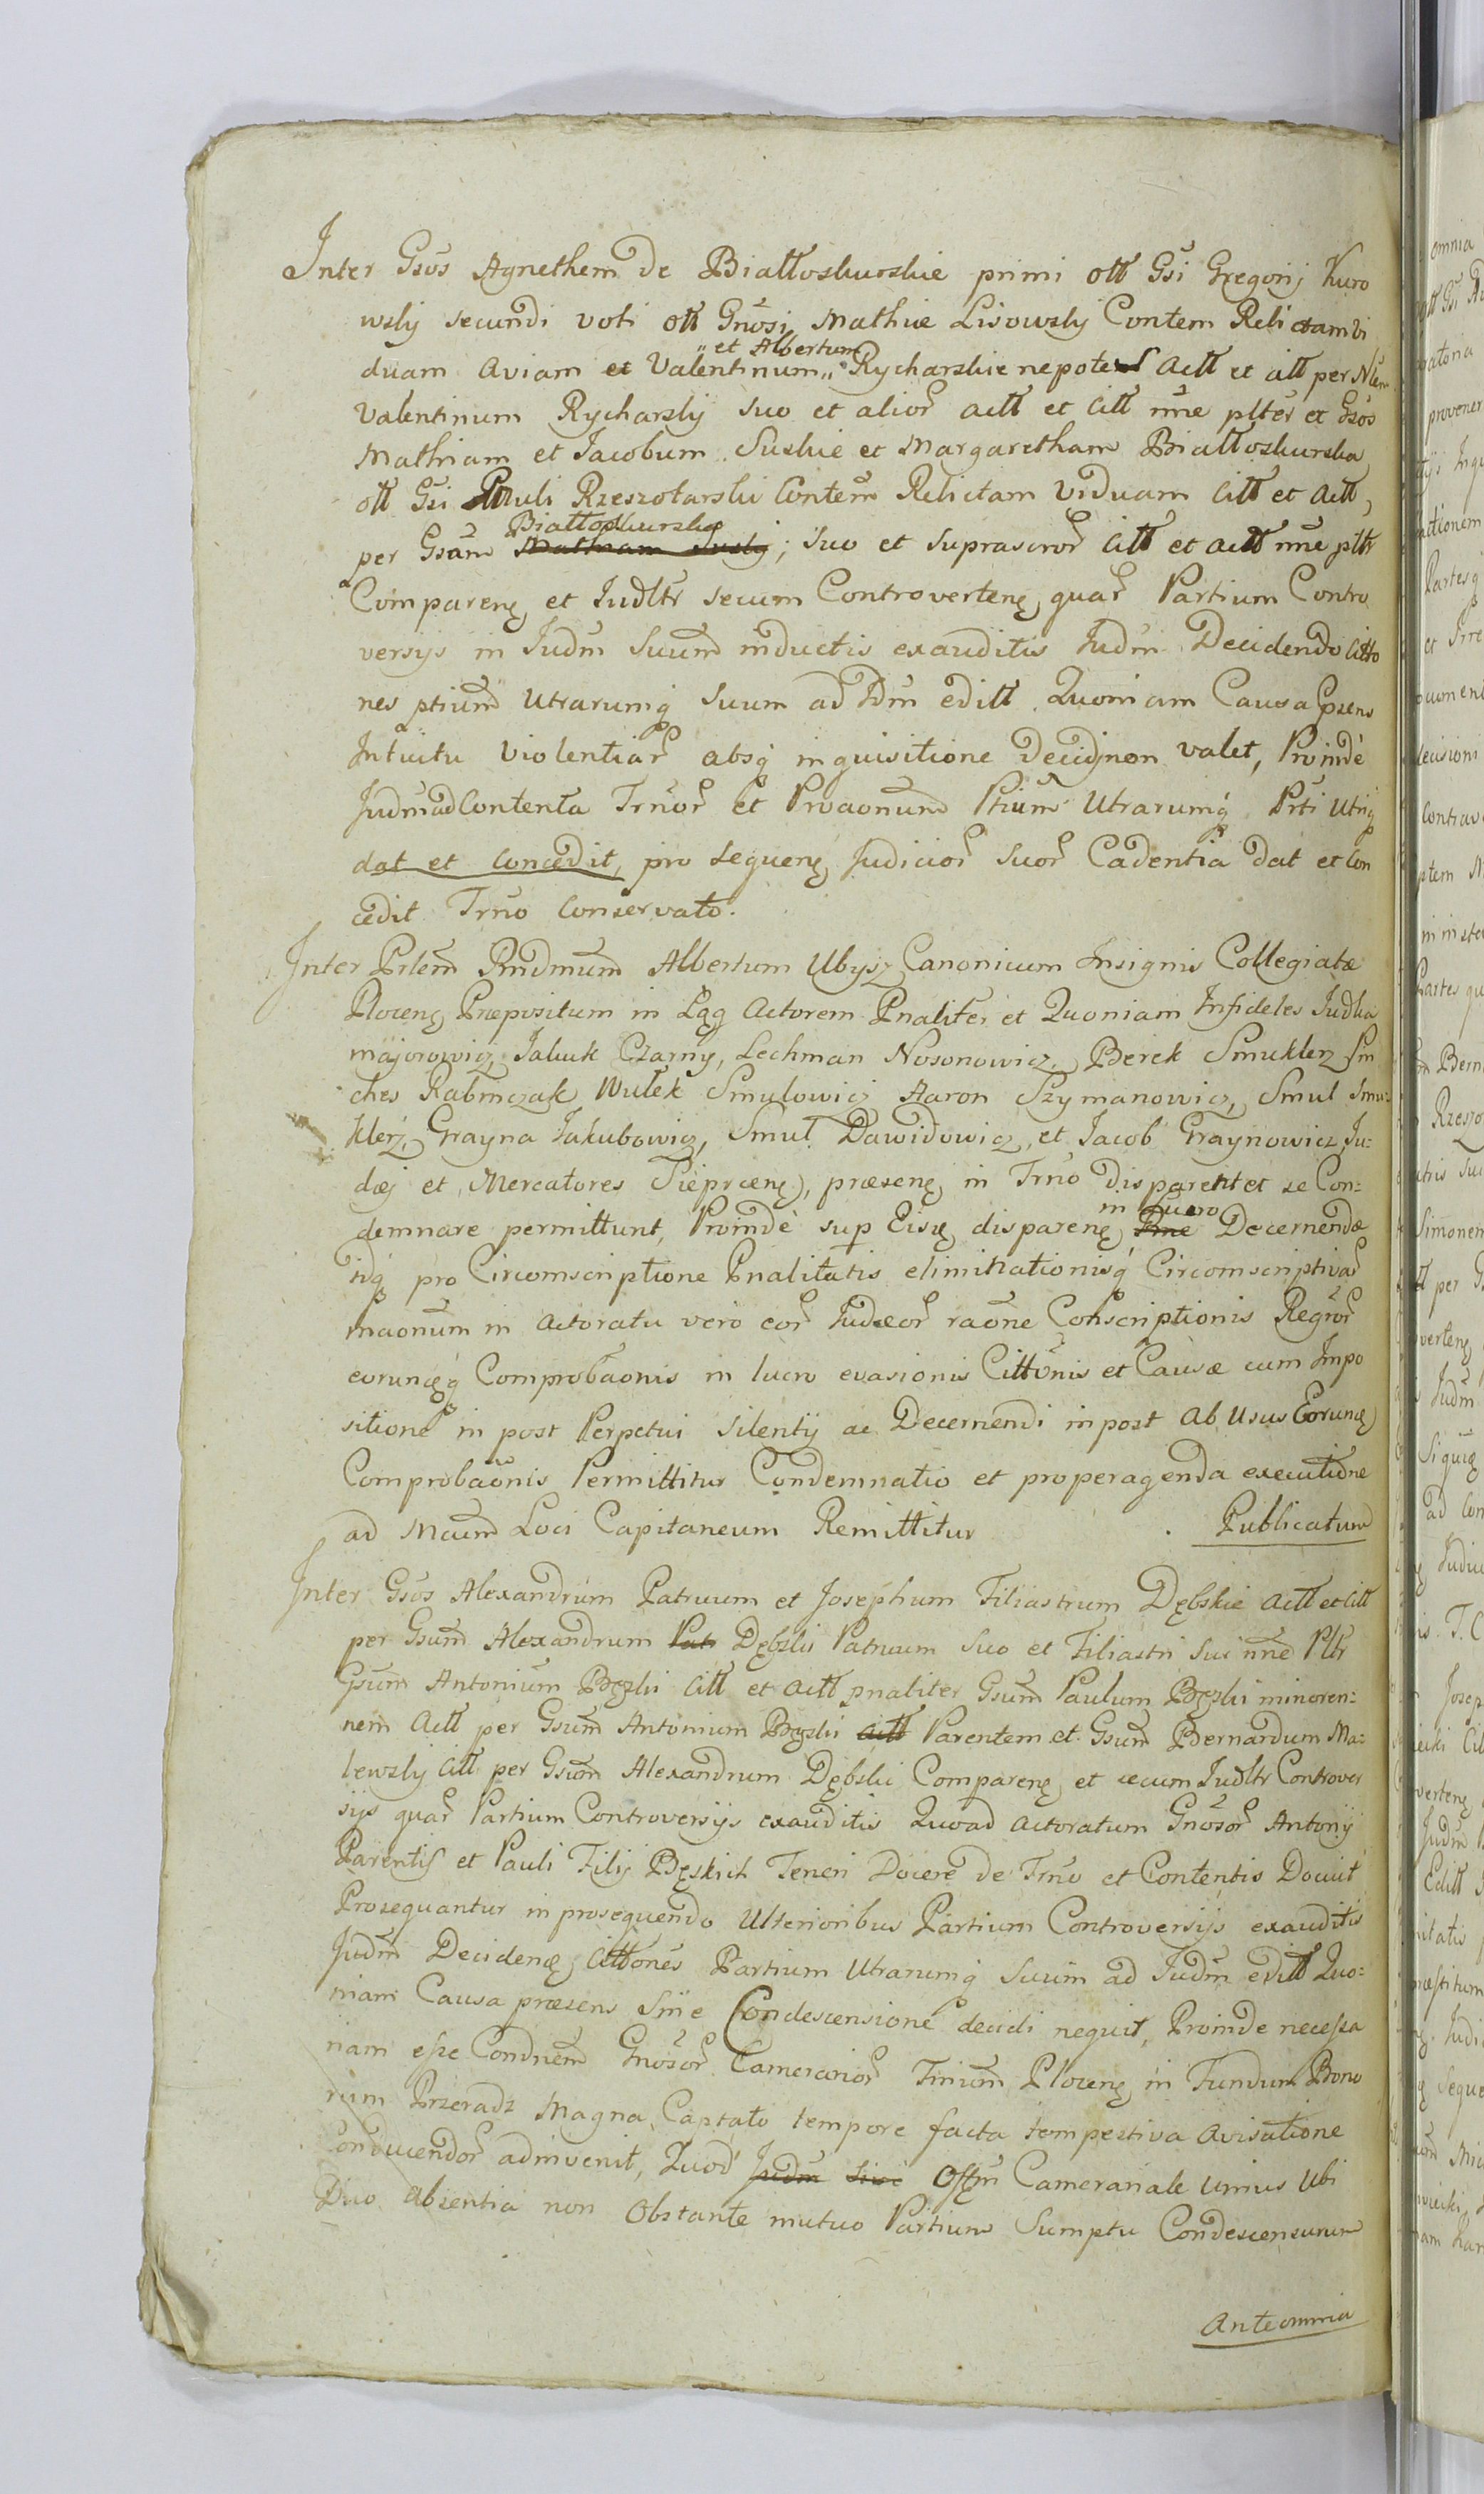 Inter Gsos Agnethem de Białłoskurskie primi ott Gsi Gregorij Kuro
wsky secundi voti ott Gnosi Mathiæ Lisowsky Contem Relictam Vi
duam Aviam et Valentinum „et Albertum„ Rycharskie nepotes Actt et citt per Nlem
Valentinum Rycharsky suo et alior actt et Citt nne plter et Gsos
Mathiam et Jacobum Suskie et Margaretham Białłoskurska
ott Gsi Pauli Rzeszotarski Contem Relictam Viduam Citt et Actt,
per Gsam Białłoskurska Mathiam Susky; suo et suprascror Citt et actt nne pltr
Compareñ et Judltr secum Controverteñ, quar Partium Contro
versys in Judm Suum inductis exauditis Judm Decidendo Citto
nes ptium Utrarumq Suum ad Jdm editt. Quoniam Causa Psens
Intuitu Violentiar absq inquisitione Decidj non valet, Proinde
Judm ad Contenta Trnor et Pvaonum Ptium Utrarumq Prti Utriq
dat et Concedit, pro sequeñ Judicior Suor Cadentia dat et Con
cedit Trno Conservato.
Inter Prlem Rndmum Albertum Ubysz Canonicum Insignis Collegiatæ
Ploceñ Præpositum in Łąg Actorem Pnaliter et Quoniam Infideles Judka
majorowicz, Jakuk Czarny, Lechman Nosonowicz, Berek Smuklerz Sm
ches Rabinczak Wulek Smulowicz Aaron Szymanowicz, Smul Smu:
klerz, Grayna Jakubowicz, Smul Dawidowicz, et Jacob Graynowicz Ju:
dæj et Mercatores Siepræñ, præseñ in Trno disparent et se Con:
demnare permittunt, Proinde sup Eisd dispareñ in Lucro Decernendæ
tdq pro Circomscriptione Pnalitatis eliminationisq Circomscriptivar
maonum in actoratu vero eor Judæor raone Conscriptionis Regror
eorundq Comprobaonis in lucro evasionis Cittonis et Causæ cum Impo
sitione in post Perpetui Silentij ac Decernendi in post Ab Usus Eorund
Comprobaonis Permittitur Condemnatio et pro peragenda executione
ad Mcum Loci Capitaneum Remittitur . Publicatum
Inter Gsos Alexandrum Patruum et Josephum Filiastrum Dębskie Actt et Citt
per Gsum Alexandrum Patr Dębski Patruum Suo et Filiastri Sui nne Pltr
Gsum Antonium Bęski Citt et actt pnaliter Gsum Paulum Bęski minoren:
nem Actt per Gsum Antonium Bęski actt Parentem et Gsum Bernardum Ma:
lewsky Citt per Gsum Alexandrum Dębski Compareñ et secum Judltr Controver
sijs quar Partium Controversijs exauditis Quoad Actoratum Gnosor Antonij
Parentis et Pauli Filij Bęskich Teneri Docere de Trno et Contentis Docuit
Prosequantur in prosequendo Ulterioribus Partium Controversijs exauditis
Judm Decidend Cittones Partium Utrarumq Suum ad Judm editt Quo:
niam Causa præsens Sine Condescensione decidi nequit, Proinde necessa
riam esse Condnem Gnosor Camerarior Trrium Ploceñ in Fundum Bono
rum Przeradz Magna, Captato tempore facta tempestiva avisatione
Conducendor adinvenit, Quod Judm sive Offm Camerariale Unius Ubi
Duo absentia non Obstante mutuo Partium Sumptu Condescensurum
Ante omnia